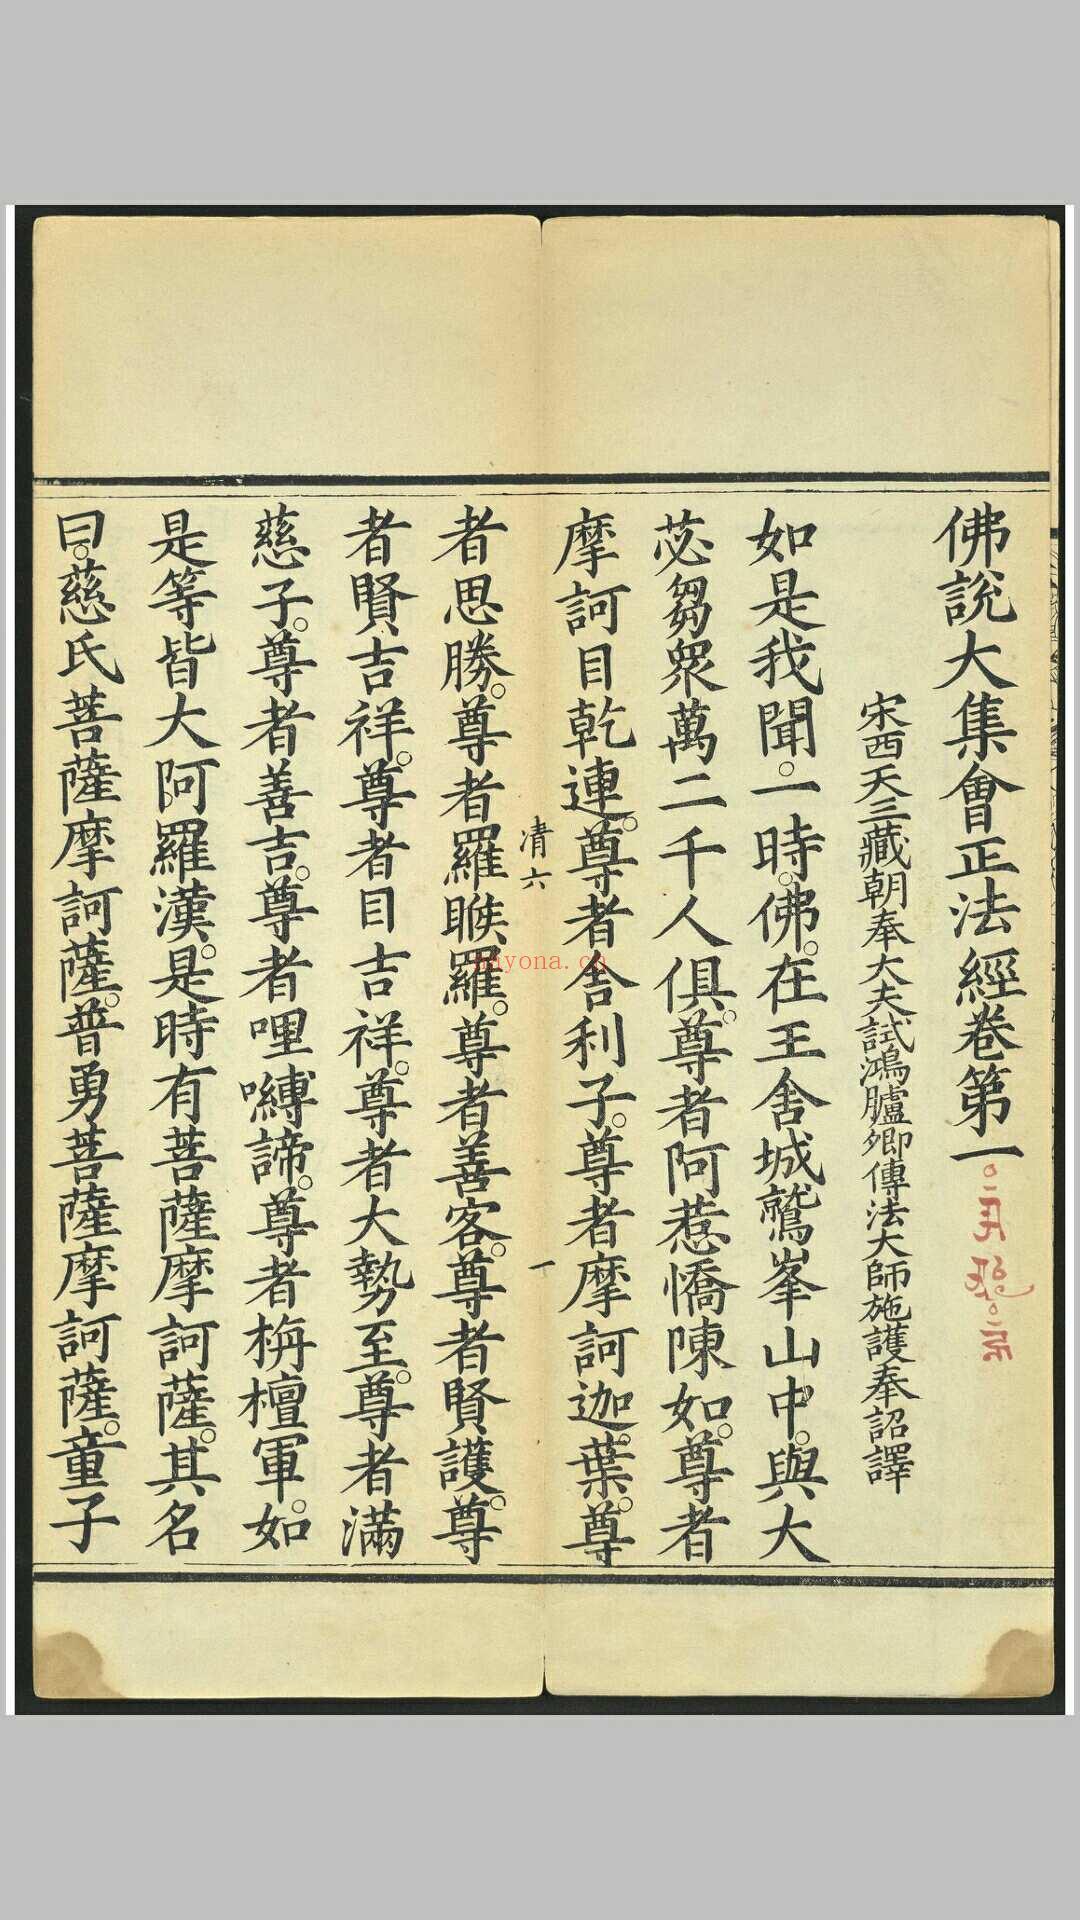 佛說大集會正法經卷第一
宋西天三藏朝奉大夫試鴻臚卿傳法大師施護奉詔譯
如是我聞。一時。佛。在王舍城鷲峯山中。與大
苾芻衆萬二千人俱。尊者阿惹憍陳如。尊者
摩訶目乾連。尊者舍利子。尊者摩訶迦葉。尊
清六
一
者思勝。尊者羅睺羅。尊者善客。尊者賢護。尊
者賢吉祥。尊者目吉祥。尊者大勢至。尊者滿
慈子。尊者善吉。尊者哩嚩諦。尊者栴檀軍。如
是等皆大阿羅漢。是時有菩薩摩訶薩。其名
曰。慈氏菩薩摩訶薩。普勇菩薩摩訶薩。童子
nayona.cn